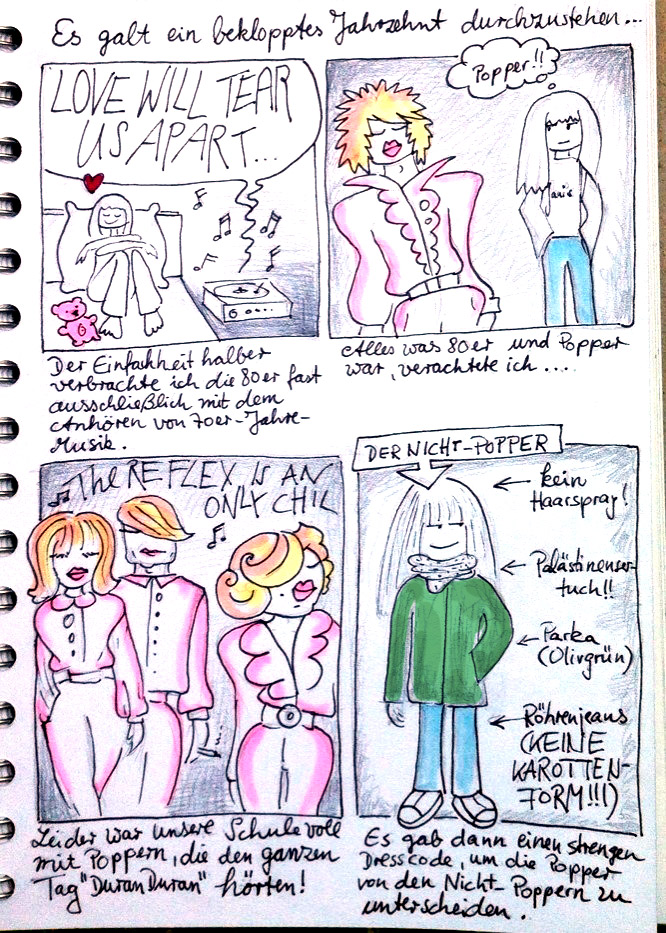 Es galt ein beklopptes Jahrzehnt durchzustehen...
LOVE WILL TEAR
US APART...
Der Einfachheit halber
verbrachte ich die 80er fast
ausschließlich mit dem
Anhören von 70er-Jahre-
Musik.
Popper!!
Alles was 80er und Popper
war, verachtete ich ....
The REFLEX IS AN
ONLY CHIL
Leider war unsere Schule voll
mit Poppern, die den ganzen
Tag "Duran Duran" hörten!
DER NICHT-POPPER
kein
Haarspray!
Palästinenser-
tuch!!
Parka
(Olivgrün)
Röhrenjeans
(KEINE
KAROTTEN-
FORM!!!)
Es gab dann einen strengen
Dresscode, um die Popper
von den Nicht-Poppern zu
unterscheiden.